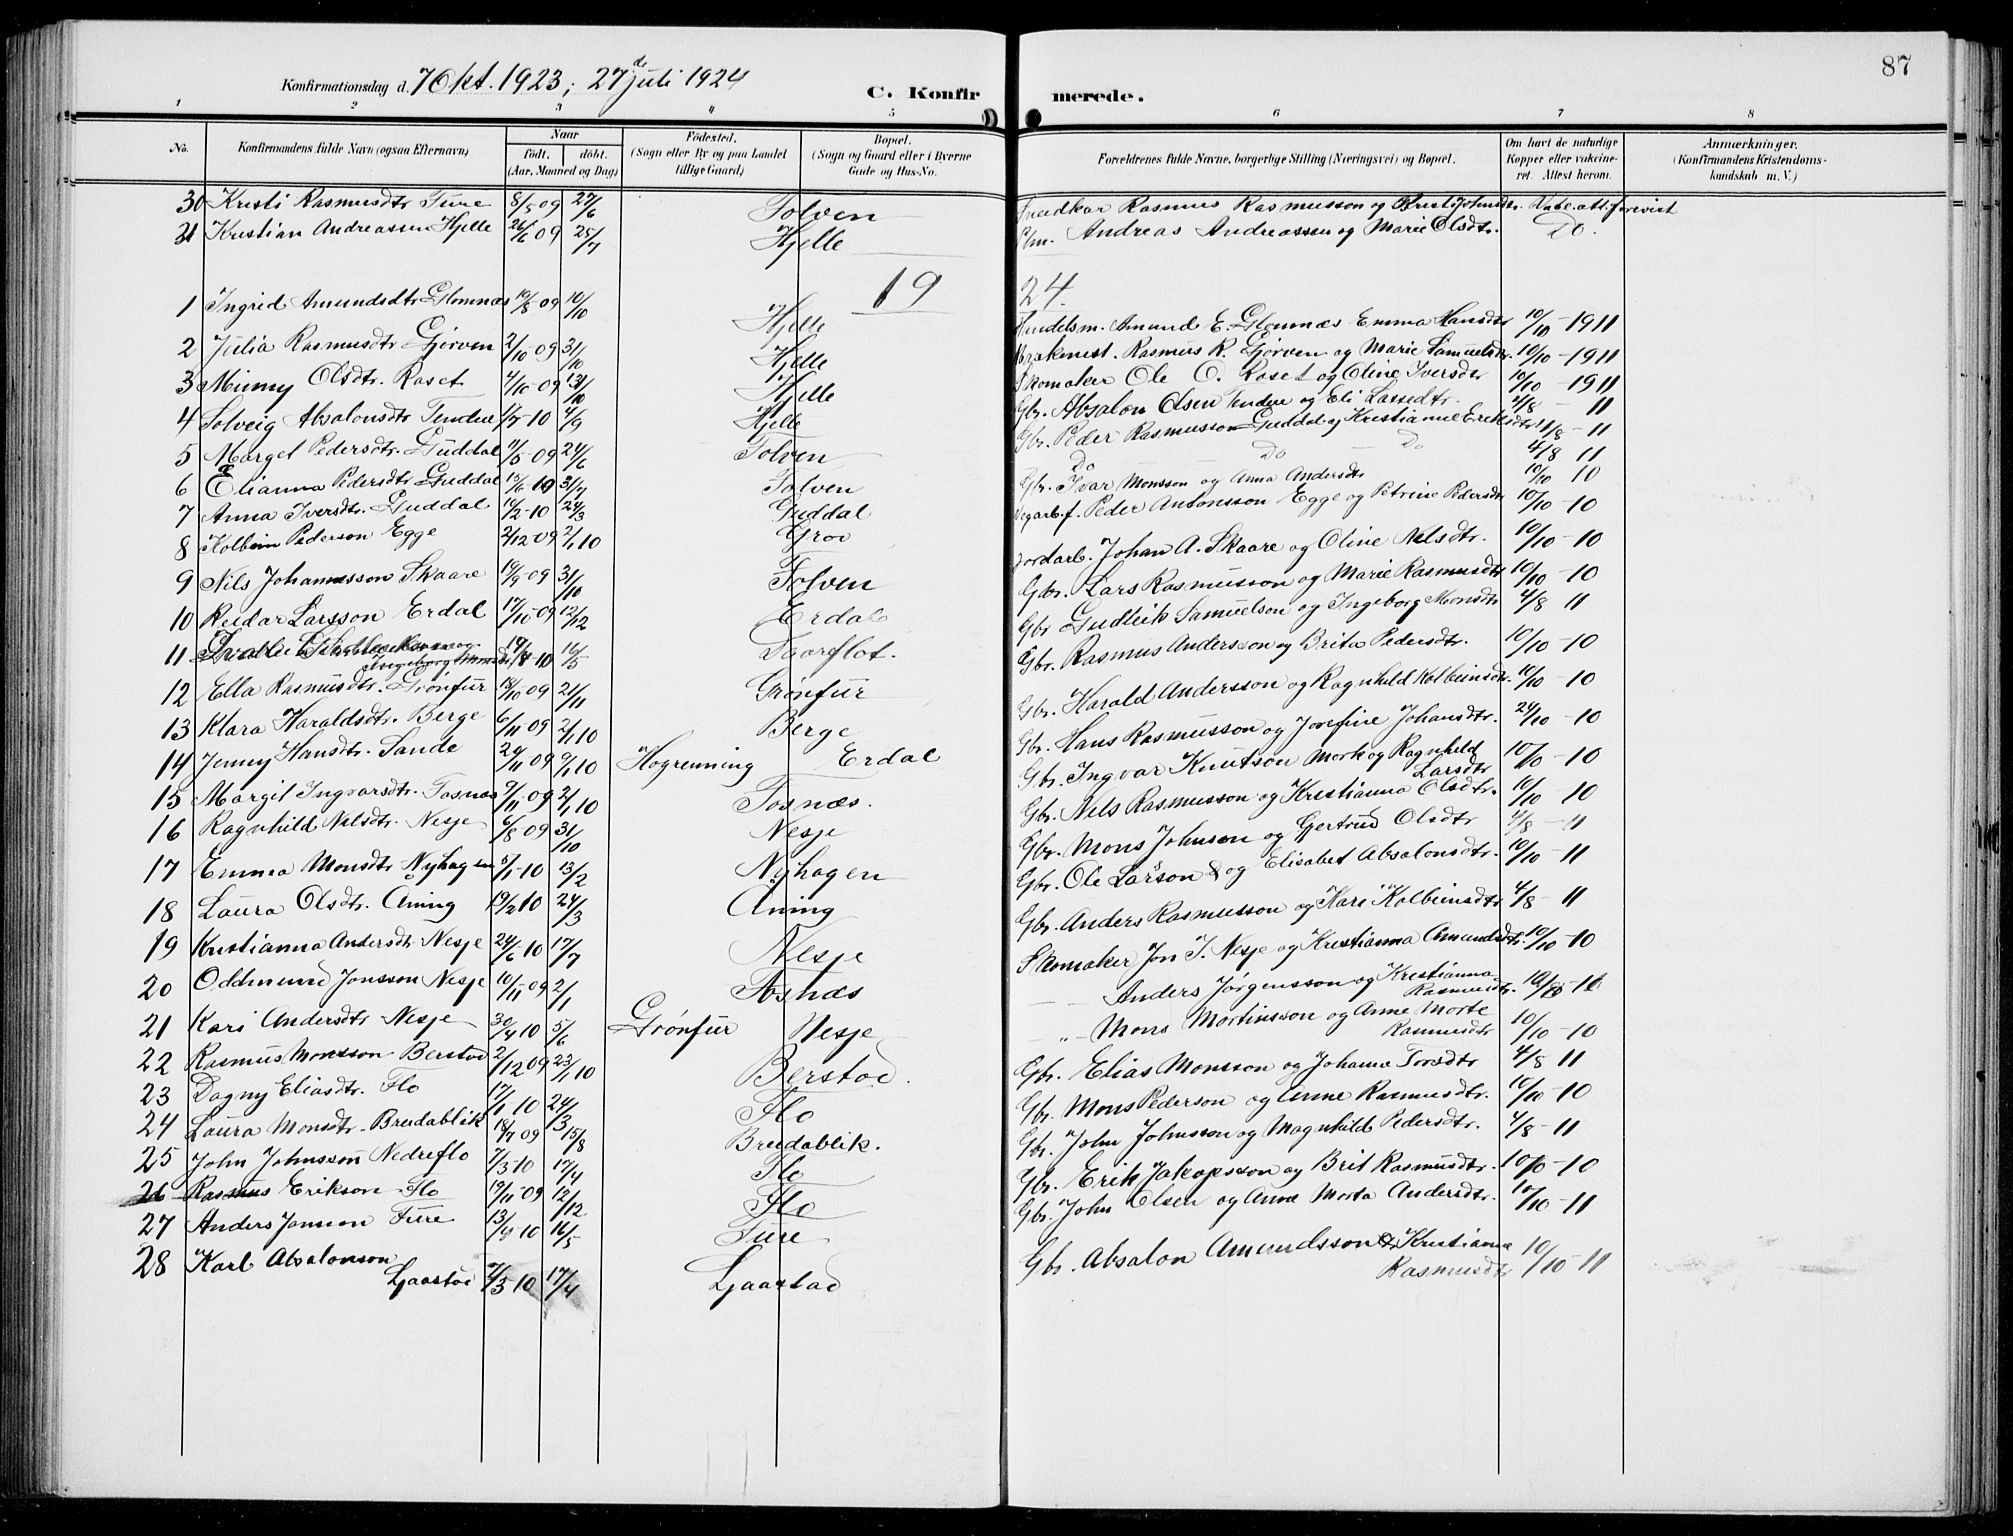 87
Konfirmationsdag d. 7 Okt. 1923; 27de juli 1924
C. Konfir merede.
1 2 3 4 5 6 7 8
No.
Konfirmandens fulde Navn (ogsaa Efternavn)
Naar
født. døbt.
(Aar, Maaned og Dag)
Fødested.
(Sogn eller By og paa Landet
tillige Gaard)
Bopæl.
(Sogn og Gaard eller i Byerne
Gade og Hus-No.
Forældrenes fulde Navne, borgerlige Stilling (Næringsvei) og Bopæl.
Om havt de naturlige
Kopper eller vakcine-
ret. Attest herom.
Anmærkninger.
(Konfirmandens Kristendoms-
kundskab m. V.)
30 Kristi Rasmusdtr Ture 8/5 09 27/6 Tolven Rasmus Rasmusson og Kristi Johnsdtr. Vakc. att. forevist
31 Kristian Andreassen Hjelle 26/6 09 25/7 Hjelle Andreas Andreassen og Marie Olsdtr. Do.
19 24.
1 Ingrid Amundsdtr Glomnes 19/8 09 10/10 Hjelle Handelsm. Amund E. Glomnæs Emma Hansdtr 10/10 - 1911
2 Julia Rasmusdtr Gjørven 2/10 09 31/10 Hjelle Rasmus R. Gjørven og Marie Samuelsdtr. 10/10 - 1911
3 Minny Olsdtr. Raset 4/10 09 31/10 Hjelle Skomaker Ole O. Raset og Oline Iversdtr 10/10 - 1911
4 Solveig Absalonsdtr Tendene 1/7 - 10 4/9 Hjelle Gbr. Absalon Olsen Tendene og Eli Lassedtr. 4/8 - 11
5 Marget Pedersdtr. Guddal 11/5 - 09 24/6 Tolven Gbr. Peder Rasmusson Guddal og Kristianne Eriksdtr 4/8 - 11
6 Elianna Pedersdtr Guddal 15/6 - 10 31/7 Tolven Do Do Do 4/8 11
7 Anna Iversdtr. Guddal 16/2 - 10 24/3 Guddal Gbr. Ivar Monsson og Anna Andersdtr 10/10 10
8 Kolbein Pederson Egge 2/12 09 2/1 10 Grov Vegarb.f. Peder Antonsson Egge og Petrine Pedersdtr 10/10 - 10
9 Nils Johannesson Skaare 19/9 - 09 31/10 Tolven Jordarb. Johan A. Skaare og Oline Nelsdtr. 10/10 - 10
10 Reidar Larsson Erdal 17/10 - 09 12/12 Erdal Gbr. Lars Rasmusson og Marie Rasmusdtr 10/10 - 10
11 Ingeborg Monsdtr 14/4 - 10 16/5 Taarflot. Gbr Gudleik Samuelson og Ingeborg Monsdtr 4/8 11
12 Ella Rasmusdtr. Grønfur 18/10 09 21/11 Grønfur Gbr. Rasmus Andersson og Brita Pedersdtr. 10/10 - 10
13 Klara Haraldsdtr. Berge 6/11 - 09 2/1 10 Berge Gbr. Harald Andersson og Ragnhild Kolbeinsdtr. 10/10 - 10
14 Jenny Hansdtr. Sande 24/11 09 9/1 10 Høgrenning Erdal Gbr. Hans Rasmusson og Josefine Johansdtr. 24/10 - 10
15 Margit Ingvarsdtr. Tosnæs 9/11 - 09 2/1 10 Tosnæs. Gbr. Ingvar Knutson Mork og Ragnhild Larsdtr 10/10 - 10
16 Ragnhild Nelsdtr. Nesje 6/8 09 31/10 Nesje Gbr. Nels Rasmusson og Kristianna Olsdtr. 10/10 - 10
17 Emma Monsdtr Nyhagen 8/1 - 10 13/2 Nyhagen Gbr. Mons Johnson og Gertrud Olsdtr 4/8 - 11
18 Laura Olsdtr. Aning 19/2 10 24/3 Aning Gbr. Ole Larson og Elisabet Absalonsdtr. 10/10 - 11
19 Kristianna Andersdtr Nesje 24/6 - 10 17/7 Nesje Gbr. Anders Rasmusson og Kari Kolbeinsdtr 4/8 - 11
20 Oddmund Jonsson Nesje 10/11 09 2/1 Tosnæs Skomaker Jon J. Nesje og Kristianna Amundsdtr. 10/10 - 10
21 Kari Andersdtr Nesje 30/4 10 5/6 Grønfur Nesje Anders Jørgensson og Kristianna Rasmusdtr.
22 Rasmus Monsson Berstad 2/12 09 23/1 10 Berstad. Mons Martinsson og Anne Marte Rasmusdtr 10/10 - 10
23 Dagny Eliasdtr. Flo 17/1 10 24/3 Flo Gbr. Elias Monsson og Johanne Torsdtr 4/8 11
24 Laura Monsdtr. Breidablik 18/7 09 15/8 Breidablik. Gbr. Mons Pederson og Anne Rasmusdtr. 10/10 - 10
25 John Johnsson Nedreflo 7/3 10 17/4 Flo Gbr. John Johnsson og Magnhild Pedersdtr. 4/8 - 11
26 Rasmus Erikson Flo 19/11 - 09 12/12 Flo Gbr. Erik Jakopsson og Brit Rasmusdtr. 10/10 - 10
27 Anders Jonsson Ture 13/4 - 10 16/5 Ture Gbr. John Olsen og Anne Marta Andersdtr. 10/10 - 11
28 Karl Absalonson Gaarstad 7/3 10 17/4 Gaarstad Gbr. Absalon Amundsson & Kristianne Rasmusdtr 10/10 - 11